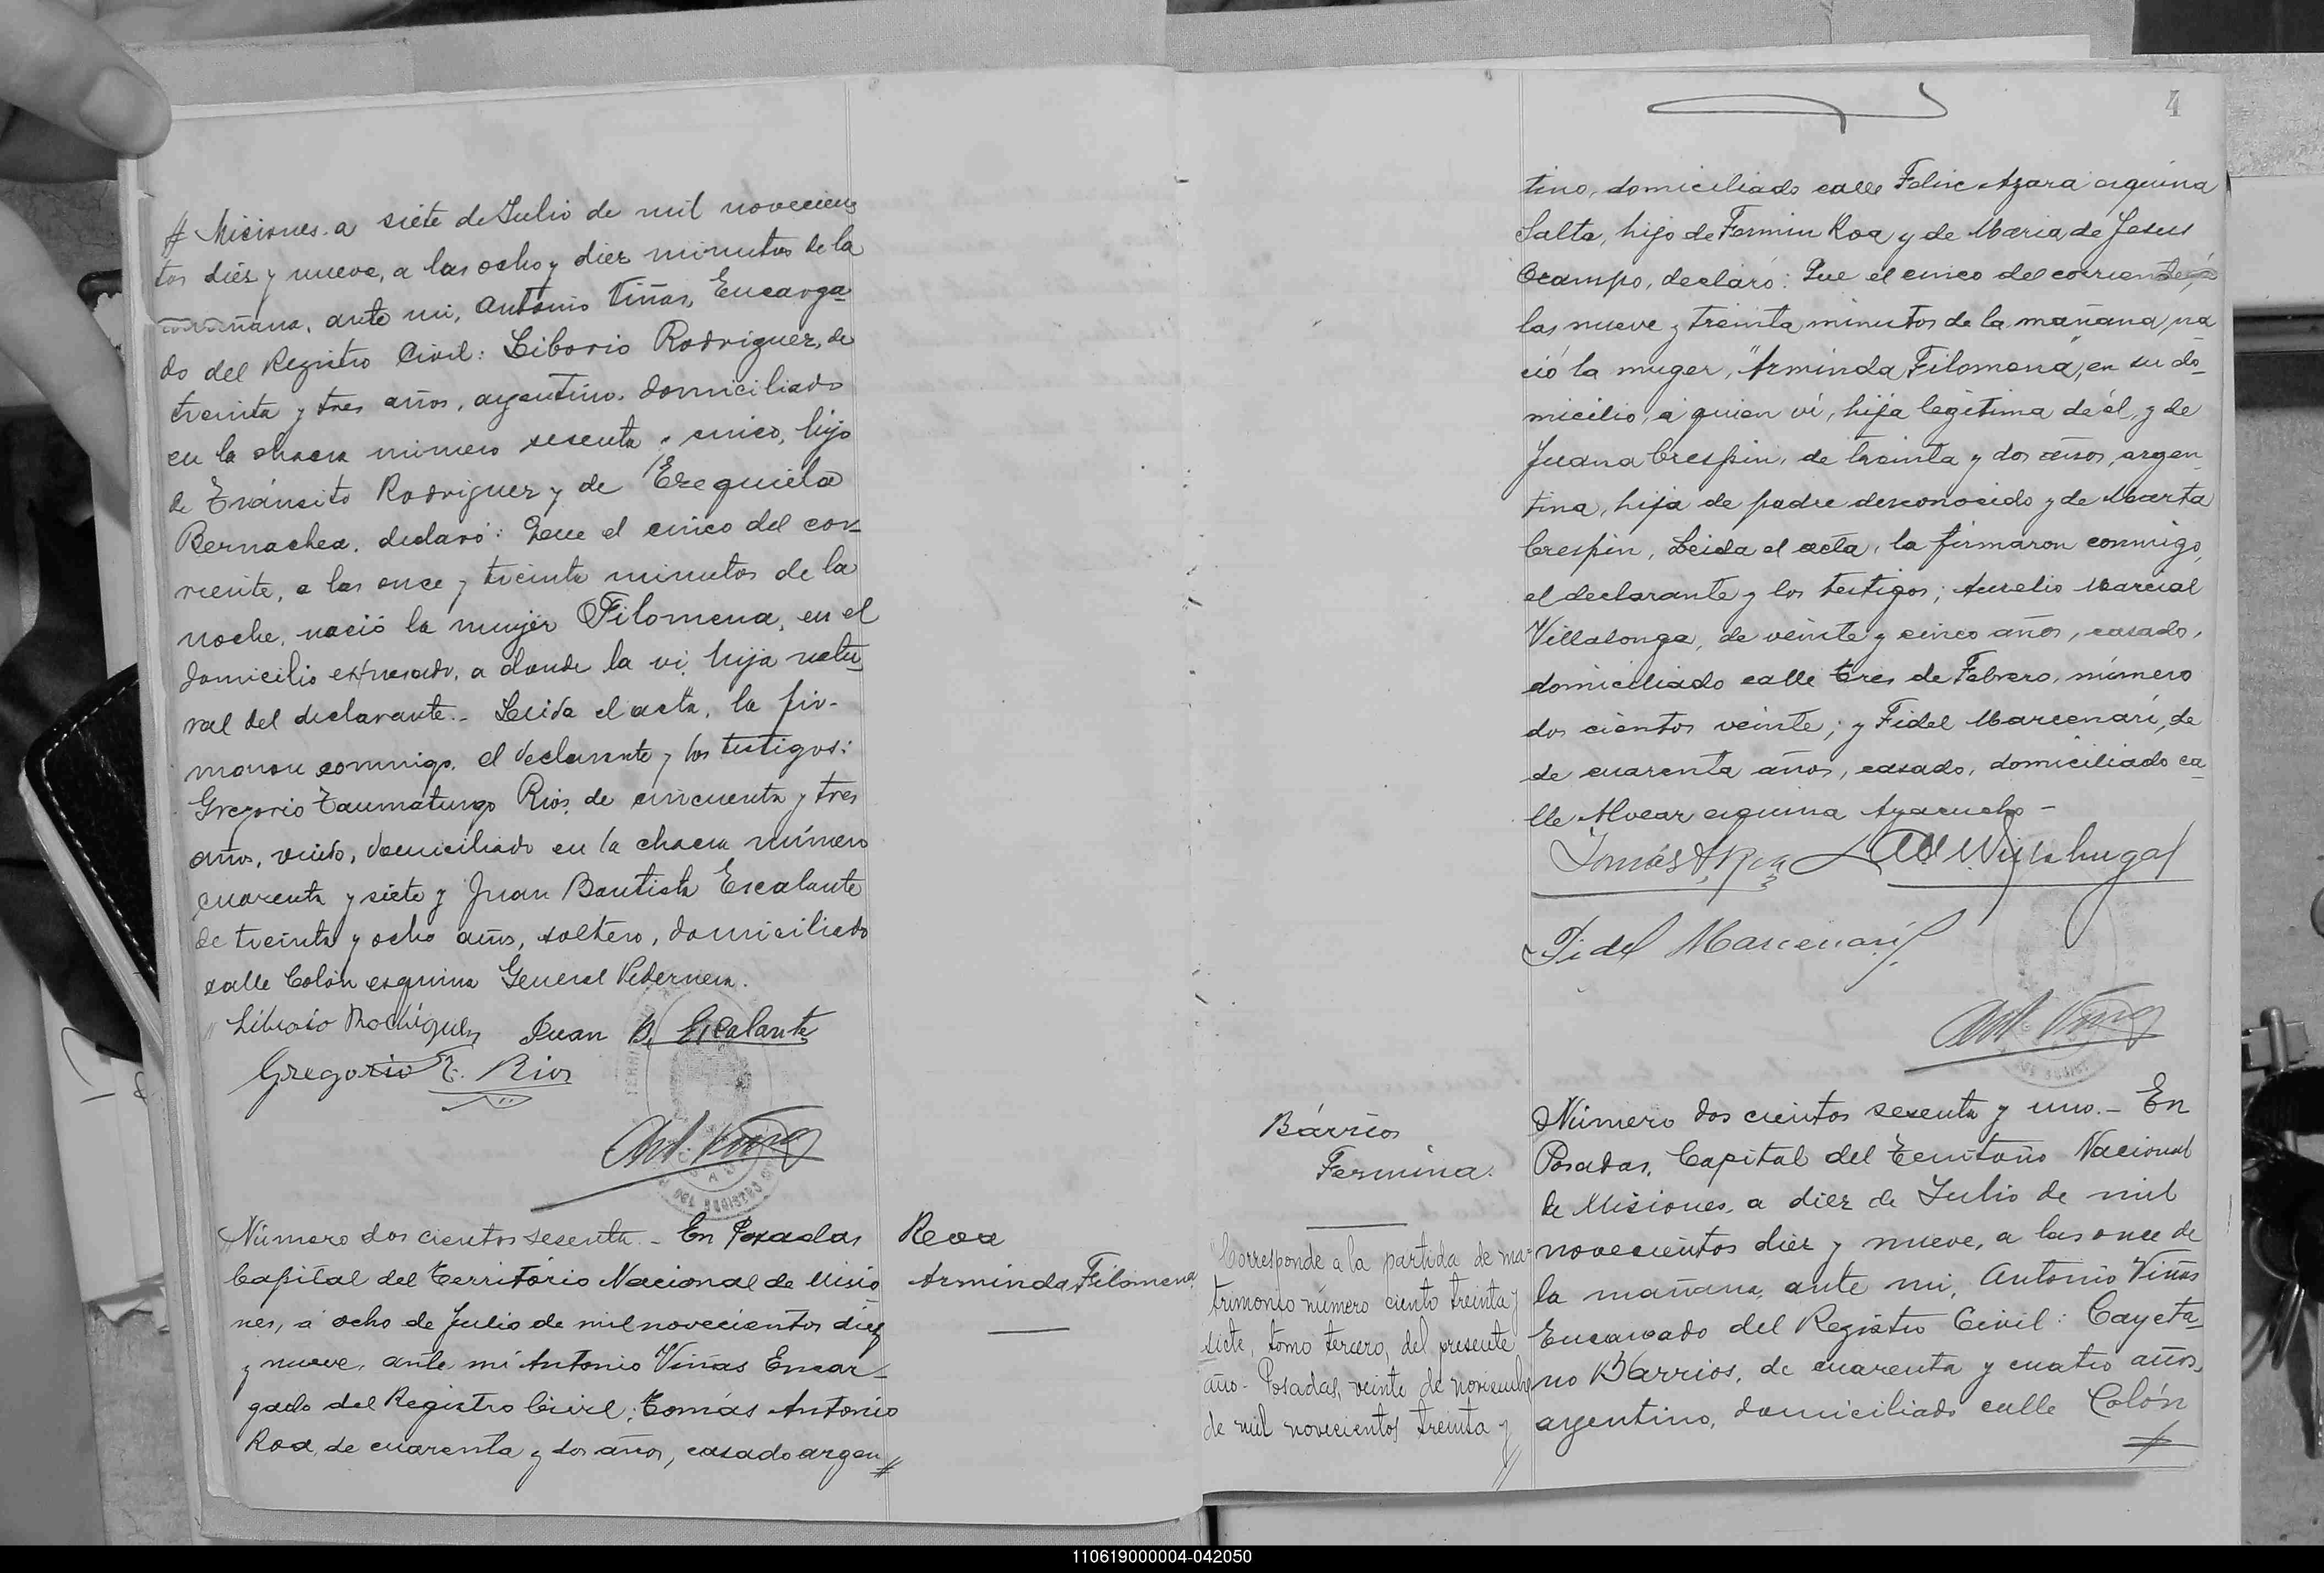 # Misiones. a siete de Julio de mil novecien
tos diez y nueve, a las ocho y diez minutos de la
mañana, ante mi, Antonio Viñas, Encarga-
do del Registro Civil: Liborio Rodriguez, de
treinta y tres años, argentino, domiciliado
en la chacra número sesenta y cinco, hijo
de Tránsito Rodriguez y de Ezequiela
Bernachea, declaró: Que el cinco del cor-
riente, a las once y treinta minutos de la
noche, nació la mujer Filomena, en el
domicilio expresado, a donde la vi, hija natu-
ral del declarante.- Leida el acta, la fir-
maron conmigo, el declarante y los testigos:
Gregorio Taumaturgo Rios, de cincuenta y tres
años, viudo, domiciliado en la chacra número
cuarenta y siete y Juan Bautista Escalante
de treinta y ocho años, soltero, domiciliado
calle Colón esquina General Pedernera.
Liborio Rodriguez Juan B. Escalante
Gregorio T. Rios
Ant. Viñas
Número dos cientos sesenta.- En Posadas
Capital del Territorio Nacional de Misio
nes, a ocho de Julio de mil novecientos diez
y nueve, ante mi Antonio Viñas Encar-
gado del Registro Civil; Tomás Antonio
Roa, de cuarenta y dos años, casado argen #
Roa
Arminda Filomena
4
tino, domiciliado calle Felix Azara esquina
Salta, hijo de Fermin Roa y de Maria de Jesus
Ocampo, declaró: Que el cinco del corriente, a
las nueve y treinta minutos de la mañana, na
ció la muger, "Arminda Filomena", en su do-
micilio, a quien ví, hija legitima de él, y de
Juana Crespin, de treinta y dos años, argen-
tina, hija de padre desconocido y de Marta
Crespin, Leida el acta, la firmaron conmigo,
el declarante y los testigos; Aurelio Marcial
Villalonga, de veinte y cinco años, casado,
domiciliado calle tres de Febrero, número
dos cientos veinte; y Fidel Marcenari, de
de cuarenta años, casado, domiciliado ca-
lle Alvear esquina Ayacucho -
Tomás A. Roa
Fidel Marcenari
Ant. Viñas
Bárrios
Fermina.
Corresponde a la partida de ma-
trimonio número ciento treinta y
siete, tomo tercero, del presente
año- Posadas, veinte de noviembre
de mil novecientos treinta y
//
Número dos cientos sesenta y uno.- En
Posadas, Capital del Territorio Nacional
de Misiones, a diez de Julio de mil
novecientos diez y nueve, a las once de
la mañana, ante mi, Antonio Viñas
Encargado del Registro Civil: Cayeta-
no Barrios, de cuarenta y cuatro años,
argentino, domiciliado calle Colón
#
110619000004-042050